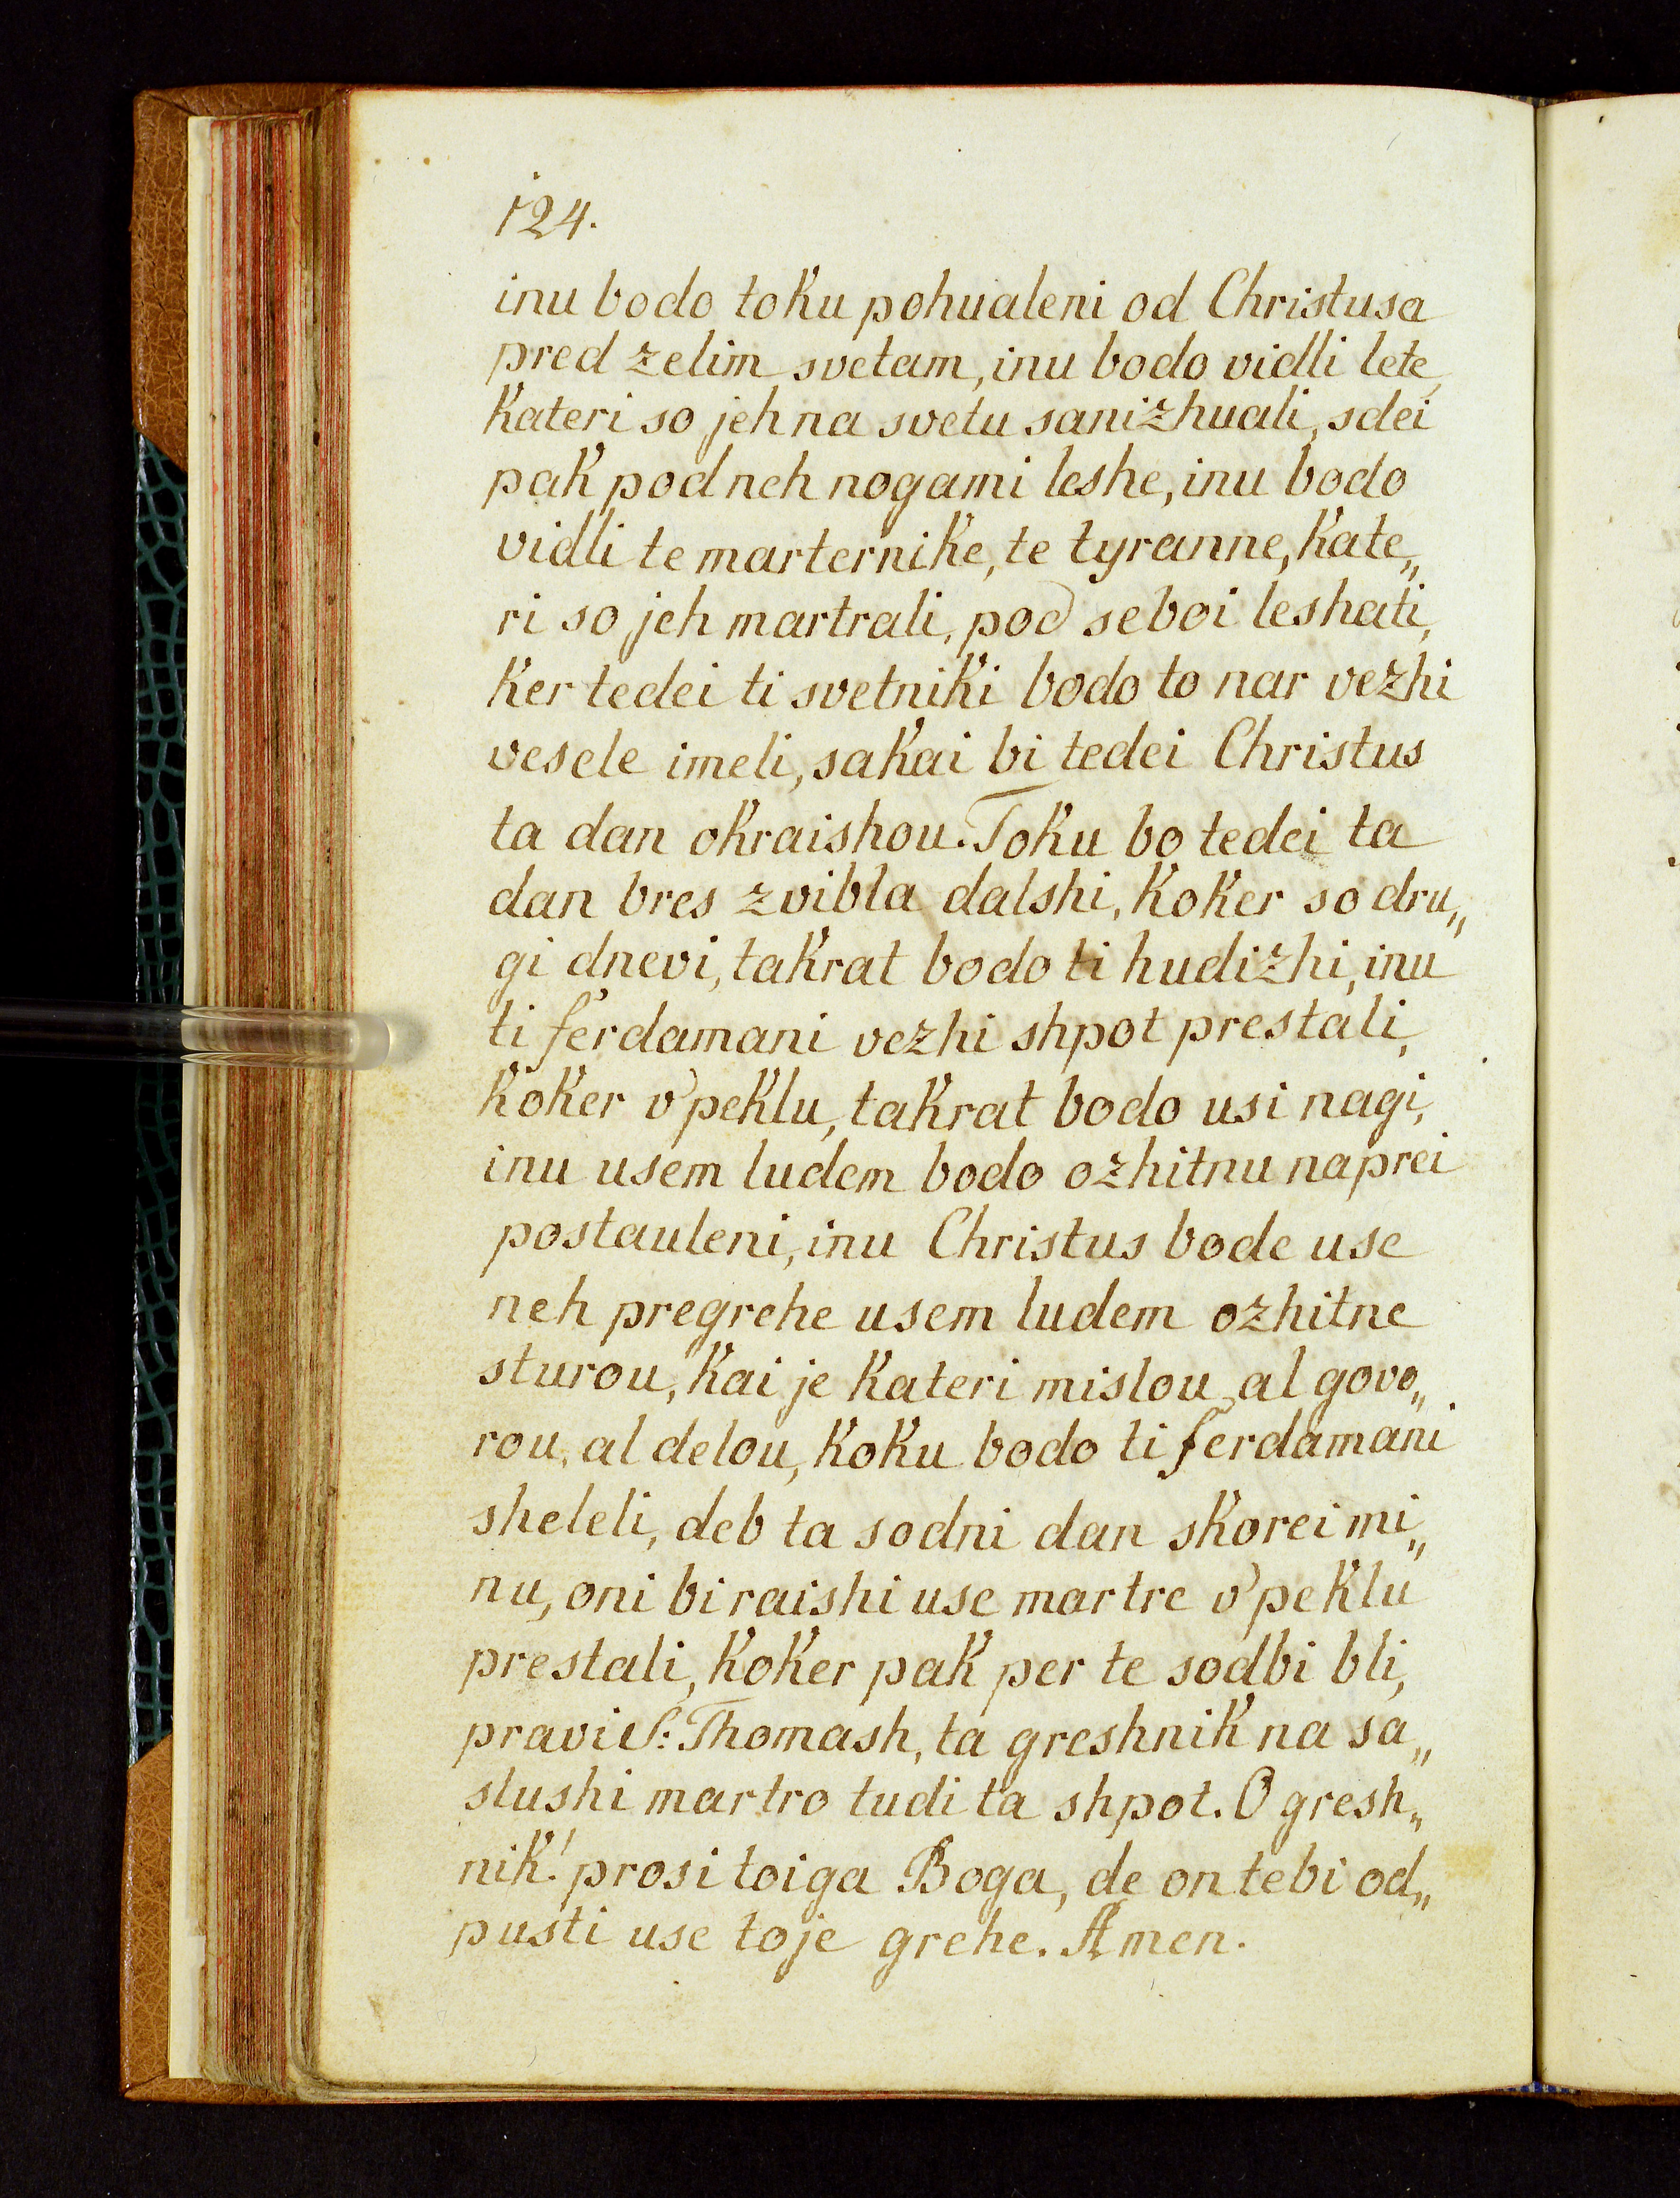 124.
inu bodo toku pohualeni od Christusa
pred zelim svetam, inu bodo vidli lete,
kateri so jeh na svetu sanizhuali, sdei
pak pod neh nogami leshe, inu bodo
vidli te marternike, te tyranne, kate„
ri so jeh martrali, pod seboi leshati,
ker tedei ti svetniki bodo to nar vezhi
vesele imeli, sakai bi tedei Christus
ta dan okraishou. Toku bo tedei ta
dan bres zvibla dalshi, koker so dru„
gi dnevi, takrat bodo ti hudizhi, inu
ti ferdamani vezhi shpot prestali,
koker v'peklu, takrat bodo usi nagi,
inu usem ludem bodo ozhitnu naprei
postauleni, inu Christus bode use
neh pregrehe usem ludem ozhitne
sturou, kai je kateri mislou, al govo„
rou, al delou, koku bodo ti ferdamani
sheleli, deb ta sodni dan skorei mi„
nu, oni bi raishi use martre v'peklu
prestali, koker pak per te sodbi bli,
pravi S: Thomash, ta greshnik na sa„
slushi martro tudi ta shpot. O gresh„
nik! prosi toiga Boga, de on tebi od„
pusti use toje grehe. Amen.